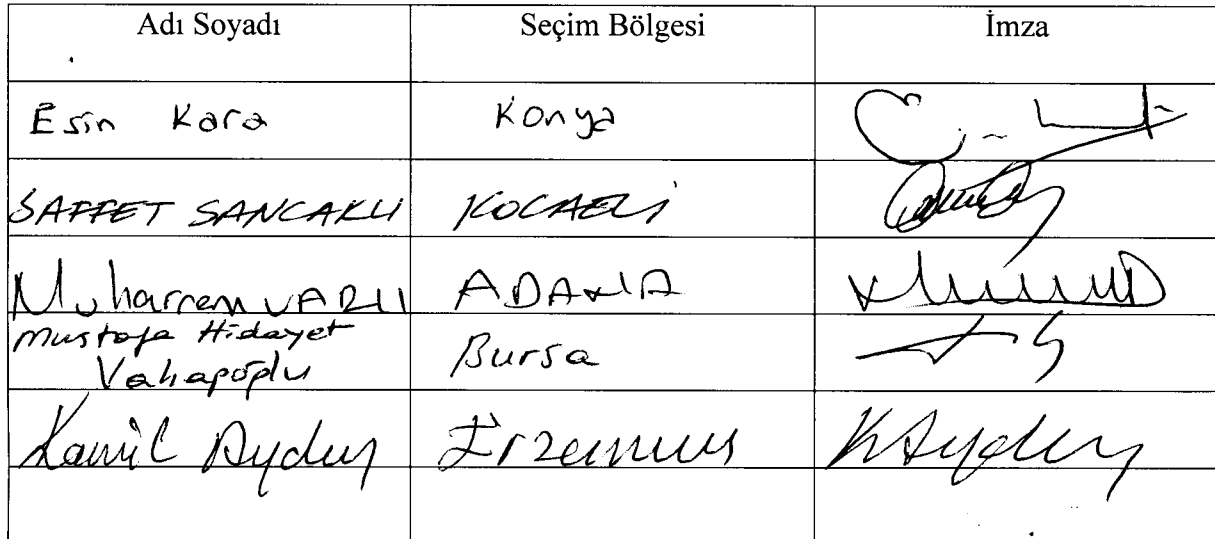 Adı Soyadı Seçim Bölgesi İmza
Esin Kara Konya
SAFFET SANCAKLI KOCAELİ
Muharrem VARLI ADANA
Mustafa Hidayet
Vahapoğlu Bursa
Kamil Aydın Erzurum KAydın